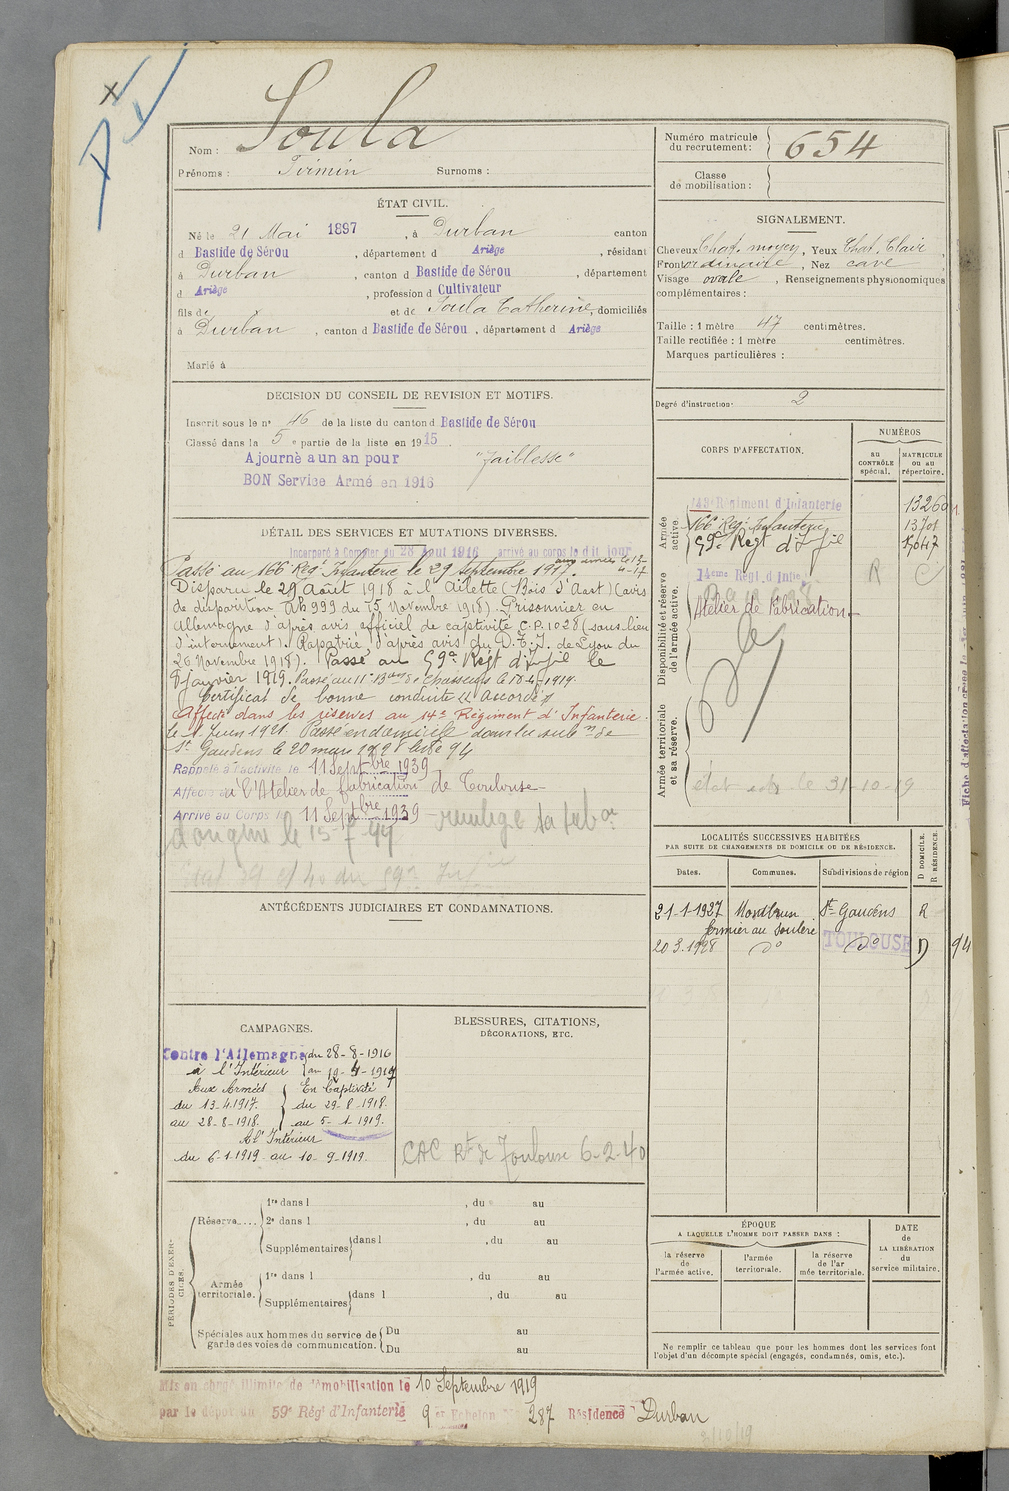 Nom : Soula
Prénoms : Firmin Surnoms :
Numéro matricule du recrutement : 654
Classe de mobilisation :
ÉTAT CIVIL.
Né le 21 Mai 1897, à Durban canton
d Bastide de Sérou, département d Ariège, résidant
à Durban, canton d Bastide de Sérou, département
d Ariège, profession d Cultivateur
fils de et de Soula Catherine, domiciliés
à Durban, canton d Bastide de Sérou, département d Ariège
Marié à
SIGNALEMENT.
Cheveux Chat. moyen, Yeux Chat. Clair
Front ordinaire, Nez cave
Visage ovale, Renseignements physionomiques
complémentaires :
Taille : 1 mètre 47 centimètres.
Taille rectifiée : 1 mètre centimètres.
Marques particulières :
Degré d'instruction : 2
DECISION DU CONSEIL DE REVISION ET MOTIFS.
Inscrit sous le n° 46 de la liste du canton d Bastide de Sérou
Classé dans la 5e partie de la liste en 1915.
Ajourné a un an pour "faiblesse"
BON Service Armé en 1916
DÉTAIL DES SERVICES ET MUTATIONS DIVERSES.
Incorporé à Compter du 28 Aout 1916 arrivé au corps le dit jour
Passé au 166 Reg' Infanterie le 29 septembre 1917.
Disparu le 29 Août 1918 à l'Ailette (Bois d'Aart) (avis
de disparition Ab 999 du 15 Novembre 1918). Prisonnier en
Allemagne d'après avis officiel de captivité C.P. 1028 (sans lieu
d'internement). Rapatrié d'après avis du D.T.I. de Lyon du
26 Novembre 1918). Passé au 59e Regt d'Inf ie le
8 janvier 1919. Passé au 11e Bon de Chasseurs le 18-4-1919.
Certificat de bonne conduite "Accordé"
Affecté dans les réserves au 14e Régiment d'Infanterie.
le 1 Juin 1921. Passé en domicile dans la subon de
St Gaudens le 20 mars 1928 liste 94
Rappelé à l'activité le 11 Septbre 1939
Affecté à l'Atelier de fabrication de Toulouse
Arrivé au Corps le 11 Septbre 1939
CORPS D'AFFECTATION.
NUMÉROS
au CONTRÔLE spécial.
MATRICULE ou au répertoire.
Armée active.
143e Régiment d'Infanterie
166 Reg' Infanterie 13701
59e Regt d'Inf ie
Disponibilité et réserve de l'armée active.
14eme Regt d'Infie R
Atelier de Fabrication
Armée territoriale et sa réserve.
le 31-10-19
LOCALITÉS SUCCESSIVES HABITÉES
PAR SUITE DE CHANGEMENTS DE DOMICILE OU DE RÉSIDENCE.
D DOMICILE.
R RÉSIDENCE.
Dates. Communes. Subdivisions de région
21-1-1927 Montbrun St Gaudens R
fermier au
20 3.1928 do TOULOUSE do D 94
ANTÉCÉDENTS JUDICIAIRES ET CONDAMNATIONS.
CAMPAGNES.
Contre l'Allemagne du 28-8-1916
à l'Intérieur au 12-4-1917
Aux Armées En Captivité
du 13-4-1917. du 29-8-1918.
au 28-8-1918. au 5-1-1919.
A l'Intérieur
du 6-1-1919 au 10-9-1919.
BLESSURES, CITATIONS,
DÉCORATIONS, ETC.
CAC Rt de Toulouse 6-2-40
PÉRIODES D'EXERCICES.
Réserve.... 1re dans l , du au
2e dans l , du au
Supplémentaires dans l , du au
Armée territoriale. 1re dans l , du au
Supplémentaires dans l , du au
Spéciales aux hommes du service de garde des voies de communication. Du au
Du au
ÉPOQUE
A LAQUELLE L'HOMME DOIT PASSER DANS :
la réserve de l'armée active.
l'armée territoriale.
la réserve de l'armée territoriale.
DATE de LA LIBÉRATION du service militaire.
Ne remplir ce tableau que pour les hommes dont les services font
l'objet d'un décompte spécial (engagés, condamnés, omis, etc.).
Mis en congé illimité de démobilisation le 10 Septembre 1919
par le dépôt du 59e Régt d'Infanterie 9 er Echelon N° 287 Résidence Durban